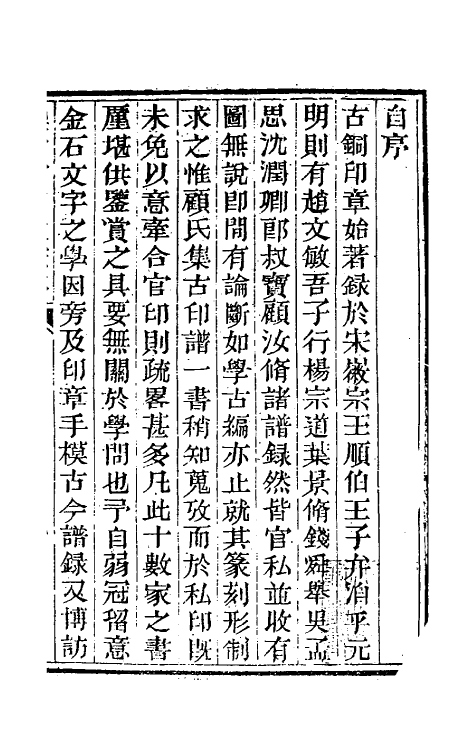 自序
古銅印章始著録於宋徽宗王順伯王子弁洎乎元
明則有趙文敏吾子行楊宗道葉景脩錢舜舉吳孟
思沈潤卿郎叔寶顧汝脩諸譜録然皆官私並收有
圖無說卽間有論斷如學古編亦止就其篆刻形制
求之惟顧氏集古印譜一書稍知蒐攷而於私印旣
未免以意牽合官印則疏畧甚多凡此十數家之書
厪堪供鑒賞之具要無關於學問也予自弱冠畱意
金石文字之學因旁及印章手模古今譜録又博訪